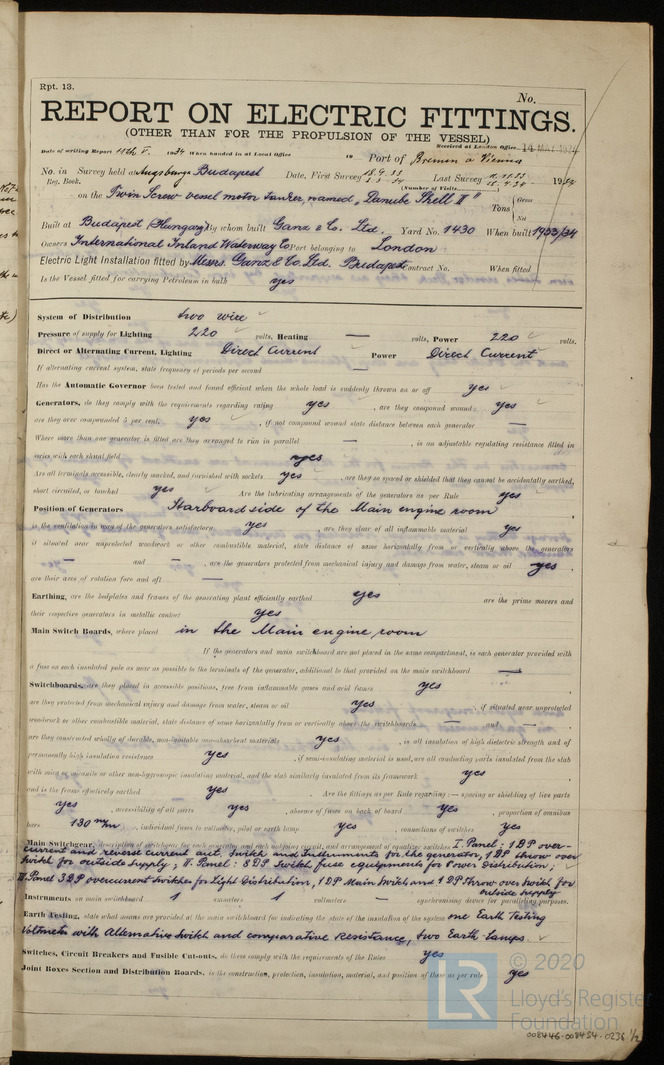 Rpt. 13.
No.
REPORT ON ELECTRIC FITTINGS.
(OTHER THAN FOR THE PROPULSION OF THE VESSEL)
Received at London Office 14 MAY 1934
Date of writing Report 11th V. 1934 When handed in at Local Office 19 Port of Bremen a Vienna
No. in Survey held at Augsburg & Budapest Date, First Survey Last Survey 1934
Reg. Book. (Number of Visits
on the Twin Screw vessel motor tanker, named "Danube Shell II" Tons Gross Net
Built at Budapest (Hungary) By whom built Ganz & Co. Ltd. Yard No. 1430 When built 1933/34
Owners International Inland Waterway Co Port belonging to London
Electric Light Installation fitted by Messrs. Ganz & Co. Ltd. Budapest Contract No. When fitted
Is the Vessel fitted for carrying Petroleum in bulk yes
System of Distribution two wire
Pressure of supply for Lighting 220 volts, Heating — volts, Power 220 volts.
Direct or Alternating Current, Lighting Direct Current Power Direct Current
If alternating current system, state frequency of periods per second —
Has the Automatic Governor been tested and found efficient when the whole load is suddenly thrown on or off yes
Generators, do they comply with the requirements regarding rating yes , are they compound wound yes
are they over compounded 5 per cent. yes , if not compound wound state distance between each generator —
Where more than one generator is fitted are they arranged to run in parallel — , is an adjustable regulating resistance fitted in
series with each shunt field yes
Are all terminals accessible, clearly marked, and furnished with sockets yes , are they so spaced or shielded that they cannot be accidentally earthed,
short circuited, or touched yes Are the lubricating arrangements of the generators as per Rule yes
Position of Generators Starboard side of the Main engine room
is the ventilation in way of the generators satisfactory yes , are they clear of all inflammable material yes
if situated near unprotected woodwork or other combustible material, state distance of same horizontally from or vertically above the generators
— and — , are the generators protected from mechanical injury and damage from water, steam or oil yes ,
are their axes of rotation fore and aft —
Earthing, are the bedplates and frames of the generating plant efficiently earthed yes are the prime movers and
their respective generators in metallic contact yes
Main Switch Boards, where placed in the Main engine room
If the generators and main switchboard are not placed in the same compartment, is each generator provided with
a fuse on each insulated pole as near as possible to the terminals of the generator, additional to that provided on the main switchboard —
Switchboards, are they placed in accessible positions, free from inflammable gases and acid fumes yes ,
are they protected from mechanical injury and damage from water, steam or oil yes , if situated near unprotected
woodwork or other combustible material, state distance of same horizontally from or vertically above the switchboards — and —
are they constructed wholly of durable, non-ignitable non-absorbent materials yes , is all insulation of high dielectric strength and of
permanently high insulation resistance yes , if semi-insulating material is used, are all conducting parts insulated from the slab
with mica or micanite or other non-hygroscopic insulating material, and the slab similarly insulated from its framework yes ,
and is the frame effectively earthed yes Are the fittings as per Rule regarding :— spacing or shielding of live parts
yes , accessibility of all parts yes , absence of fuses on back of board yes , proportion of omnibus
bars 130 m/m , individual fuses to voltmeter, pilot or earth lamp yes , connections of switches yes
Main Switchgear, description of switchgear for each generator and each outgoing circuit, and arrangement of equalizer switches I. Panel : 1 DP over-
current and reverse current aut. switch and Instruments for the generator, 1 DP throw over
switch for outside supply ; II. Panel : 8 DP Switch fuse equipments for Power distribution ;
III. Panel 3 DP overcurrent Switches for Light Distribution, 1 DP Main Switch and 1 DP Throw over Switch for
outside supply
Instruments on main switchboard 1 ammeters 1 voltmeters — synchronising device for paralleling purposes.
Earth Testing, state what means are provided at the main switchboard for indicating the state of the insulation of the system one Earth Testing
Voltmeter with Alternative Switch and comparative Resistance, two Earth lamps.
Switches, Circuit Breakers and Fusible Cut-outs, do these comply with the requirements of the Rules yes
Joint Boxes Section and Distribution Boards, is the construction, protection, insulation, material, and position of these as per rule yes
© 2020
LR
Lloyd's Register
Foundation
008446-008454-0236 1/2